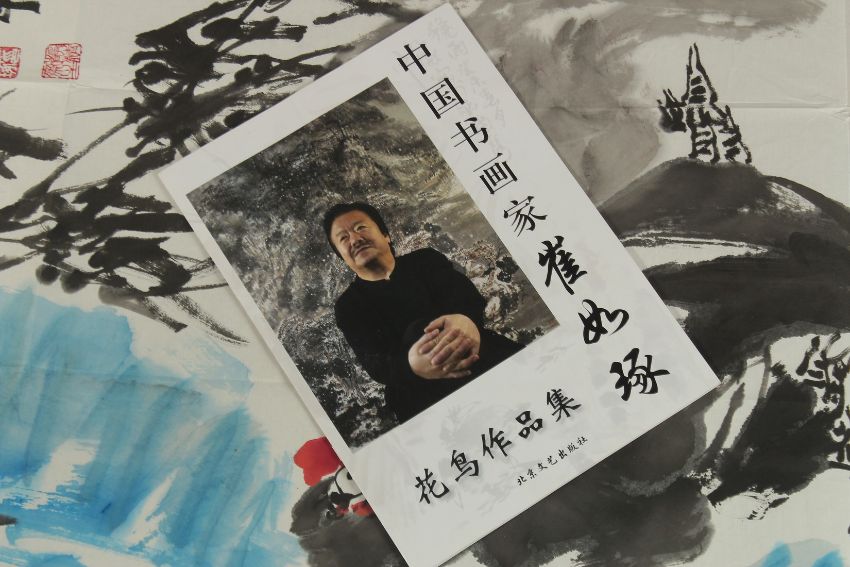 中国书画家崔如琢
花鸟作品集
北京文艺出版社